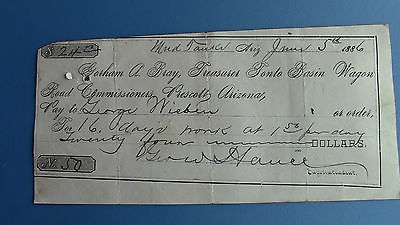 $ 24 00
Mud Tanks Arz June 5th 1886
Gorham A. Bray, Treasurer Tonto Basin Wagon
Road Commissioners, Prescott, Arizona,
Pay to George Wieben or order,
For 16 days work at 1 50 per day
Twenty four DOLLARS.
No. 50 Geo W Hance
Superintendent.